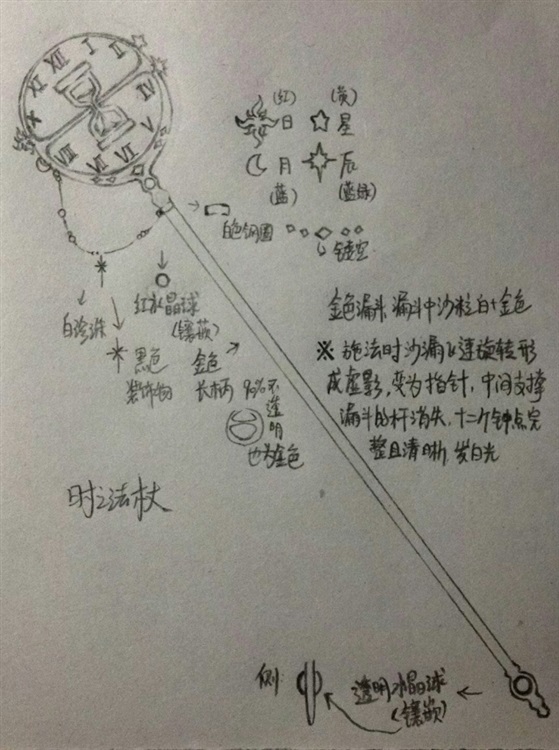 XI XII I II
X
VIII VII VI V
IV
(红) (黄)
日 星
月 辰
(蓝) (蓝绿)
白色钢圈
镂空
红水晶球
(镶嵌)
白珍珠
黑色
装饰物
金色
长柄
90%不
透
明
也为金色
金色漏斗,漏斗中沙粒白+金色
※ 施法时沙漏飞速旋转形
成虚影,变为指针,中间支撑
漏斗的杆消失,十二个钟点完
整且清晰,发白光
时之法杖
侧:
透明水晶球
(镶嵌)